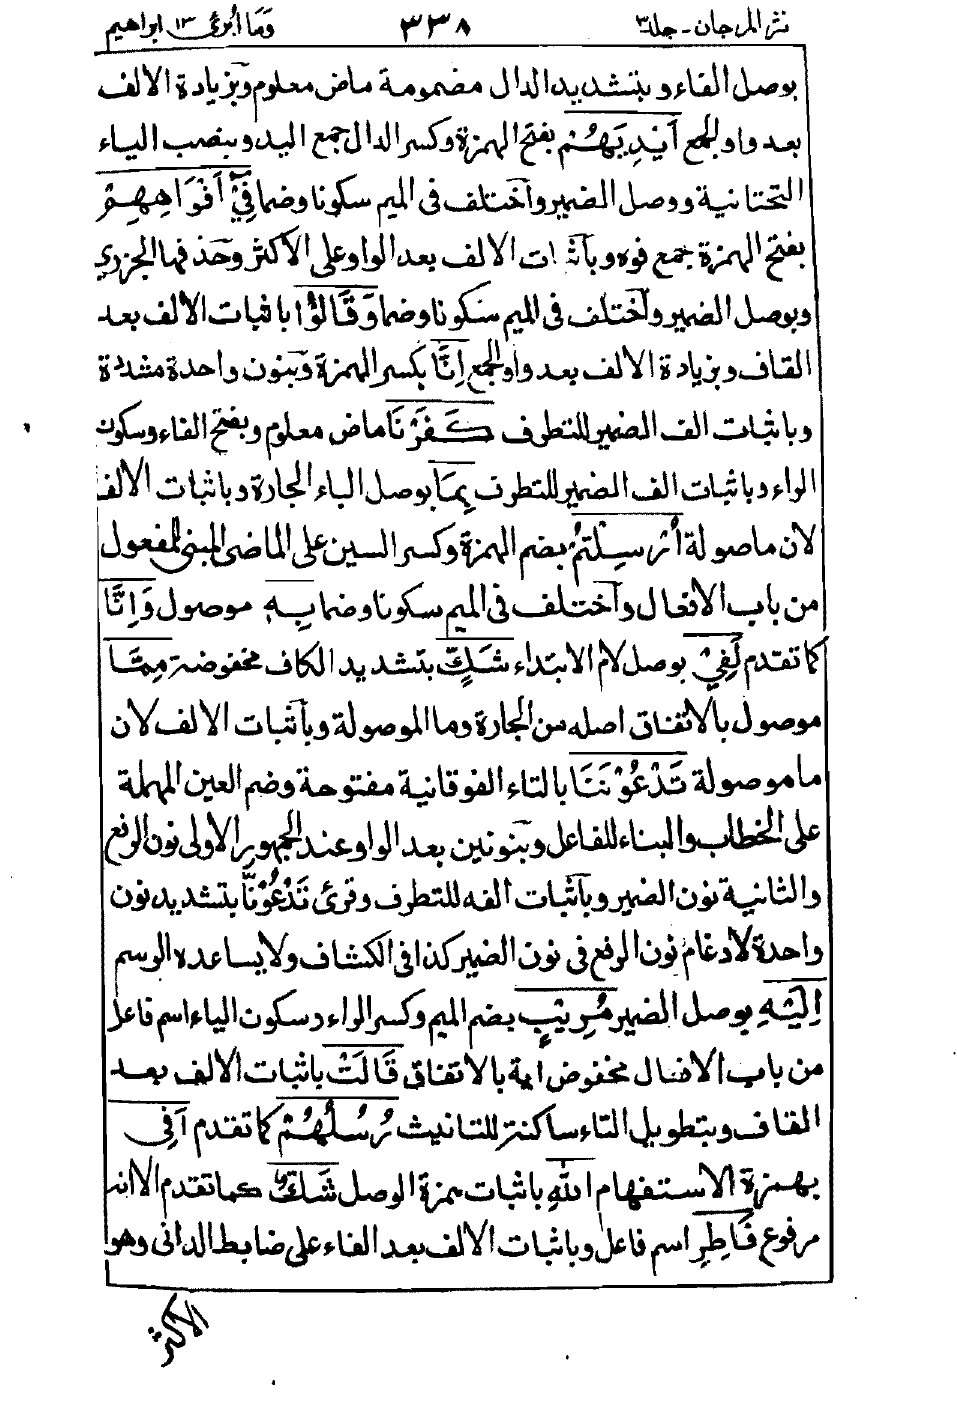 نثر المرجان - جلد ٣ ٣٣٨ وَمَا أُبَرِّئُ ١٣ ابراهيم
بوصل الفاء وبتشديد الدال مضمومة ماض معلوم وبزيادة الالف
بعد واو الجمع أَيْدِيَهُمْ بفتح الهمزة وكسر الدال جمع اليد وبنصب الياء
التحتانية ووصل الضمير واختلف فى الميم سكونا وضما فِيْ أَفْوَاهِهِمْ
بفتح الهمزة جمع فوه وباثبات الالف بعد الواو على الاكثر وحذفها الجزرى
وبوصل الضمير واختلف فى الميم سكونا وضما وَقَالُوْا باثبات الالف بعد
القاف وبزيادة الالف بعد واو الجمع اِنَّا بكسر الهمزة وبنون واحدة مشددة
وباثبات الف الضمير للتطرف كَفَرْنَا ماض معلوم وبفتح الفاء وسكون
الراء وباثبات الف الضمير للتطرف بِمَا بوصل الباء الجارة وباثبات الالف
لان ما صولة أُرْسِلْتُمْ بضم الهمزة وكسر السين على الماضى المبنى للمفعول
من باب الافعال واختلف فى الميم سكونا وضما بِهٖ موصول وَاِنَّا
كما تقدم لَفِيْ بوصل لام الابتداء شَكٍّ بتشديد الكاف مخفوضة مِمَّا
موصول بالاتفاق اصله من الجارة وما الموصولة وباثبات الالف لان
ما موصولة تَدْعُوْنَنَا بالتاء الفوقانية مفتوحة وضم العين المهملة
على الخطاب والبناء للفاعل وبنونين بعد الواو عند الجمهور الاولى نون الرفع
والثانية نون الضمير وباثبات الفه للتطرف وقرئ تَدْعُوْنَّا بتشديد نون
واحدة لادغام نون الرفع فى نون الضمير كذا فى الكشاف ولا يساعده الرسم
اِلَيْهِ بوصل الضمير مُرِيْبٍ بضم الميم وكسر الراء وسكون الياء اسم فاعل
من باب الافعال مخفوض اية بالاتفاق قَالَتْ باثبات الالف بعد
القاف وبتطويل التاء ساكنة للتانيث رُسُلُهُمْ كما تقدم اَفِى
بهمزة الاستفهام اللهِ باثبات همزة الوصل شَكٌّ كما تقدم الا انه
مرفوع فَاطِرِ اسم فاعل وباثبات الالف بعد الفاء على ضابط الدانى وهو
الاكثر